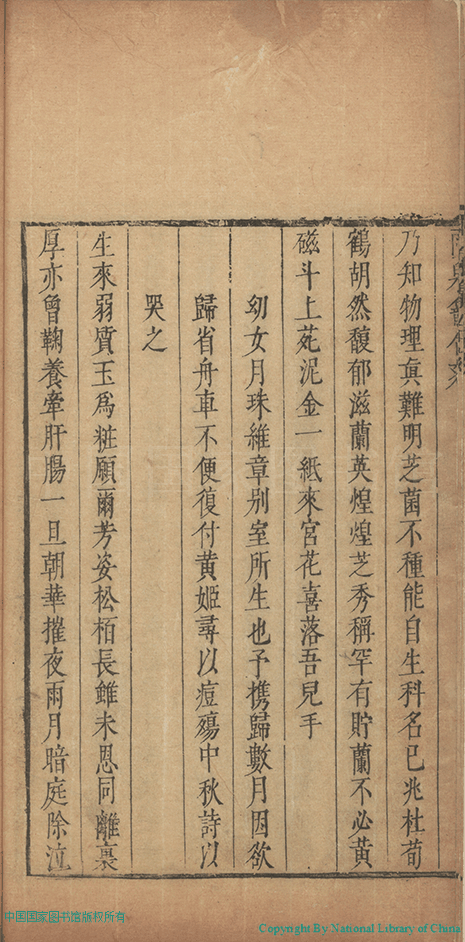 乃知物理眞難明芝菌不種能自生科名已兆杜荀
鶴胡然馥郁滋蘭英煌煌芝秀稱罕有貯蘭不必黃
磁斗上苑泥金一紙來宮花喜落吾兒手
幼女月珠維章別室所生也予携歸數月因欲
歸省舟車不便復付黃姬尋以痘殤中秋詩以
哭之
生來弱質玉爲粧願爾芳姿松栢長雖未恩同離裏
厚亦曾鞠養牽肝腸一旦朝華摧夜雨月暗庭除泣
中国国家图书馆版权所有
Copyright By National Library of China